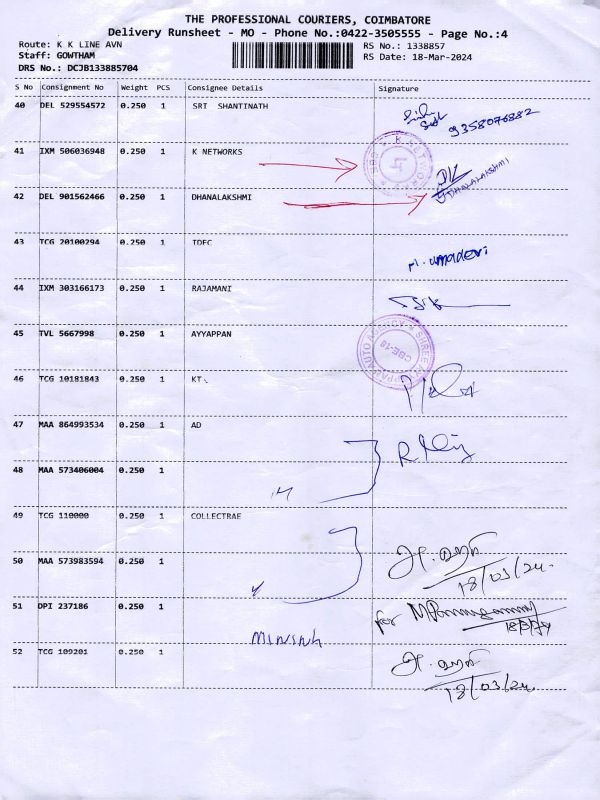 THE PROFESSIONAL COURIERS, COIMBATORE
Delivery Runsheet - MO - Phone No.:0422-3505555 - Page No.:4
Route: K K LINE AVN
RS No.: 1338857
Staff: GOWTHAM
RS Date: 18-Mar-2024
DRS No.: DCJB133885704
S No Consignment No Weight PCS Consignee Details Signature
40 DEL 529554572 0.250 1 SRI SHANTINATH
9358076882
41 IXM 506036948 0.250 1 K NETWORKS
K NETWORK
42 DEL 901562466 0.250 1 DHANALAKSHMI DHANALAKSHMI
43 TCG 20100294 0.250 1 IDFC
umadevi
44 IXM 303166173 0.250 1 RAJAMANI
45 TVL 5667998 0.250 1 AYYAPPAN
CBE-18
46 TCG 10181843 0.250 1 KT
47 MAA 864993534 0.250 1 AD
48 MAA 573406004 0.250 1
49 TCG 110000 0.250 1 COLLECTRAE
50 MAA 573983594 0.250 1
18/03/24
51 DPI 237186 0.250 1 for
18/3/24
52 TCG 109201 0.250 1
18/03/24